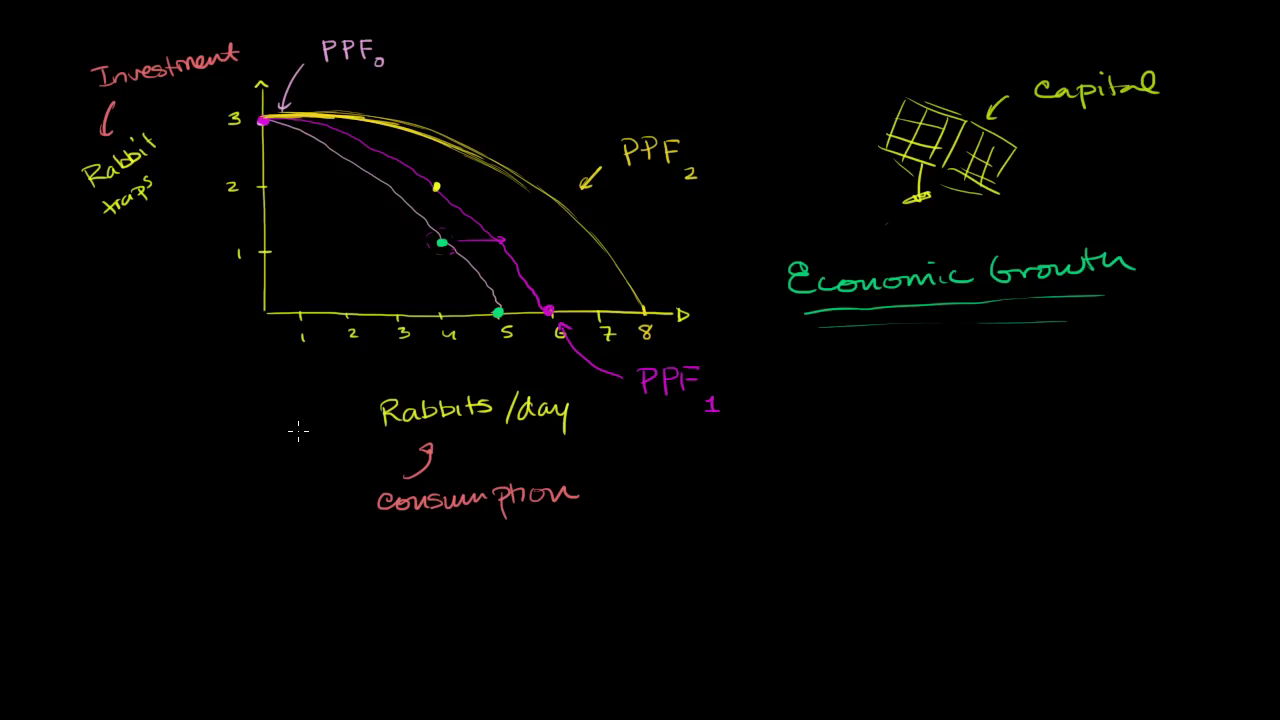 Investment
Rabbit
traps
PPF0
3
2
1
1 2 3 4 5 6 7 8
PPF2
PPF1
Rabbits/day
consumption
Capital
Economic Growth